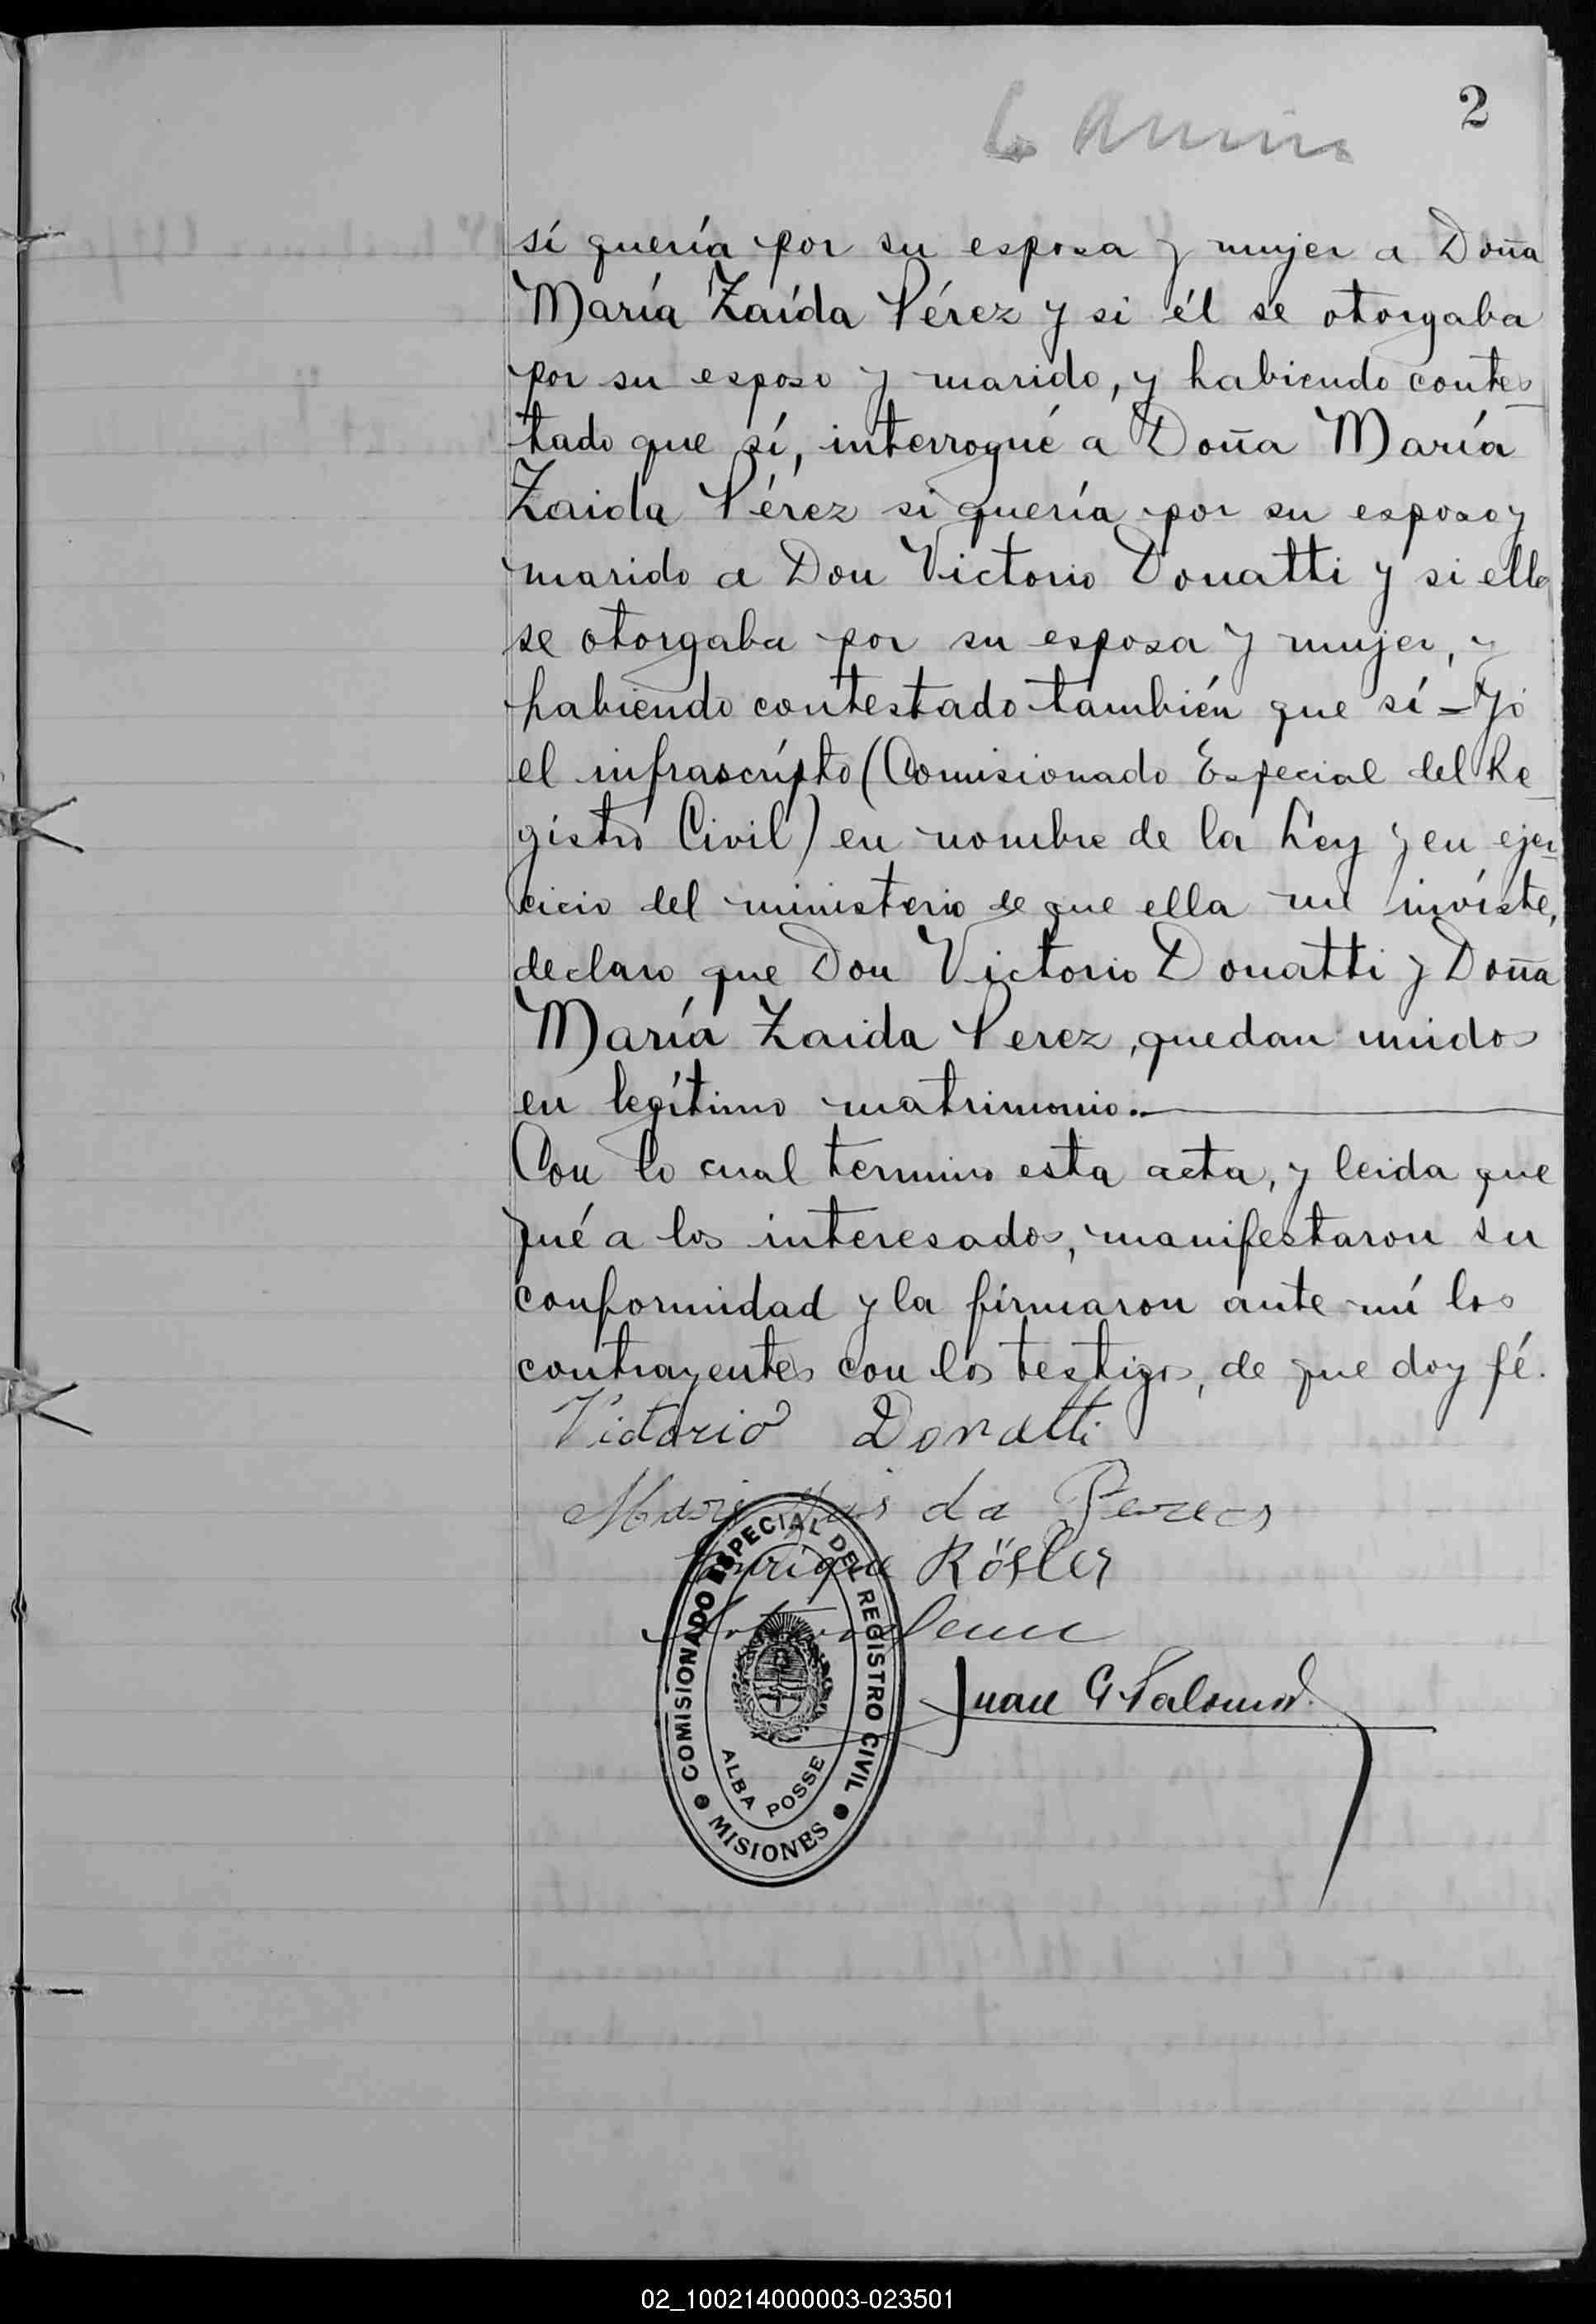 2
sí quería por su esposa y mujer a Doña
María Zaída Pérez y si él se otorgaba
por su esposo y marido, y habiendo contes
tado que sí, interrogué a Doña María
Zaida Pérez si quería por su esposo y
marido a Don Victorio Donatti y si ella
se otorgaba por su esposa y mujer, y
habiendo contestado también que sí - Yo
el infrascrípto (Comisionado Especial del Re
gistro Civil) en nombre de la Ley y en ejer
cicio del ministerio de que ella me invíste,
declaro que Don Victorio Donatti y Doña
María Zaida Perez, quedan unidos
en legítimo matrimonio.
Con lo cual termino esta acta, y leida que
fué a los interesados, manifestaron su
conformidad y la firmaron ante mí los
contrayentes con los testigos, de que doy fé.
Victorio Donatti
da
Enrique Rösler
Juan G Palomo
COMISIONADO ESPECIAL DEL REGISTRO CIVIL
ALBA POSSE
MISIONES
02_100214000003-023501